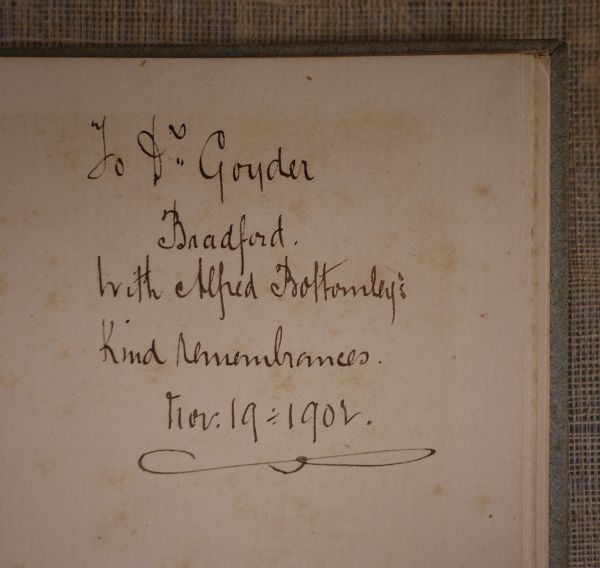 To Dr. Goyder
Bradford.
With Alfred Bottomley's
Kind remembrances.
Nov. 19 : 1902.